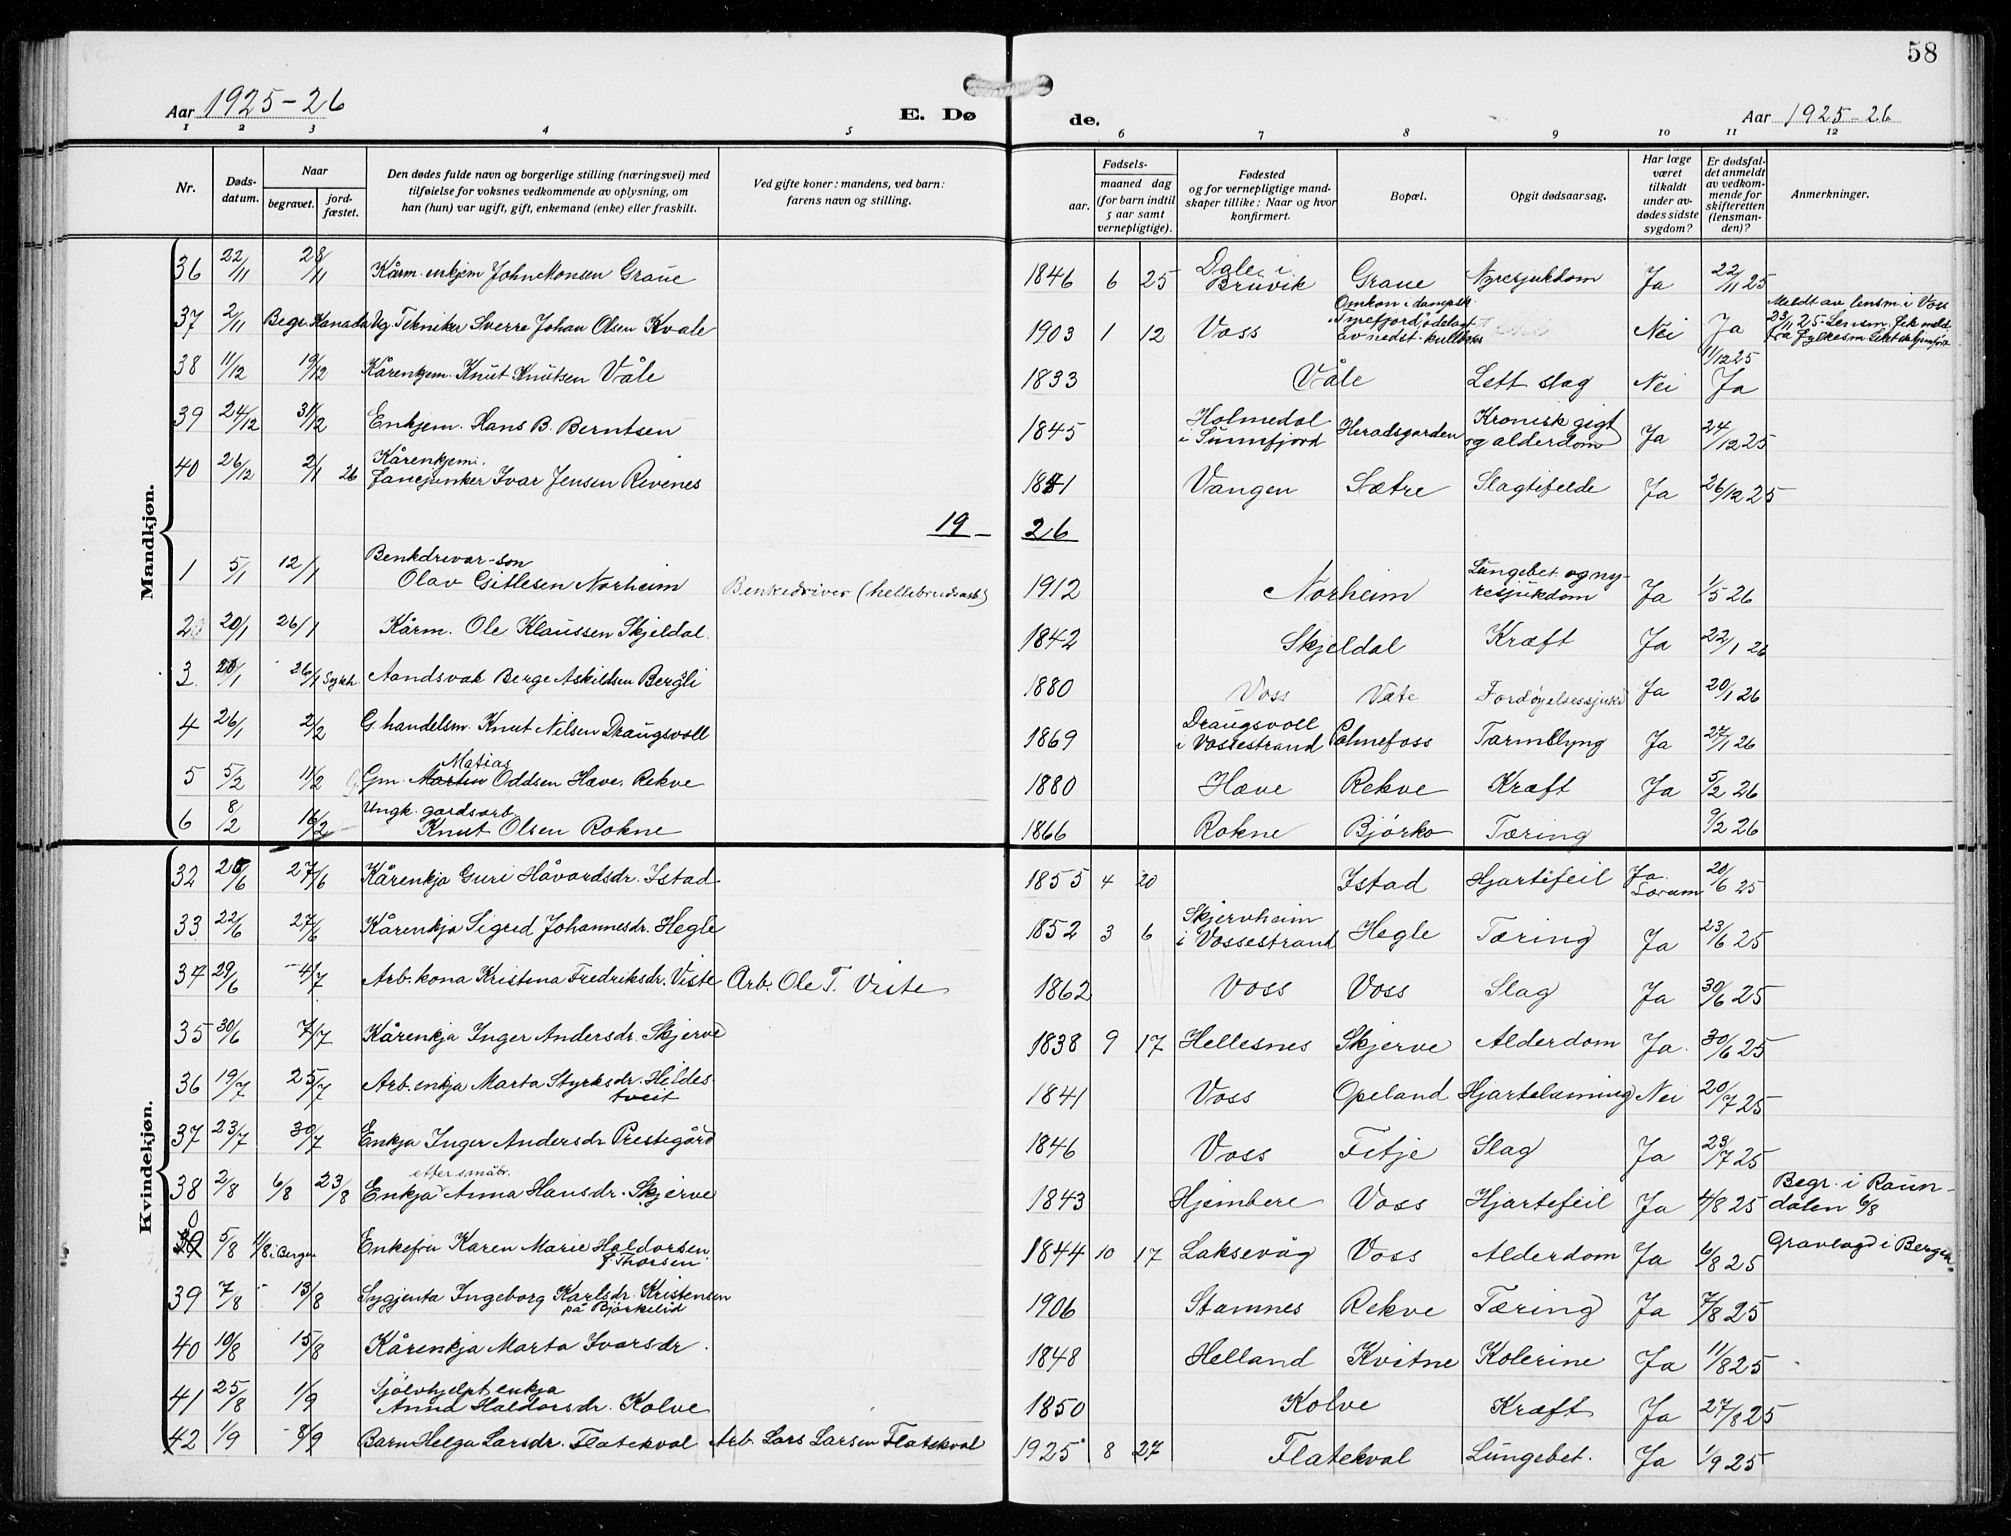 58
Aar 1925-26 E. Dø de. Aar 1925-26
1 2 3 4 5 6 7 8 9 10 11 12
Nr. Døds-datum. Naar begravet. jord-fæstet. Den dødes fulde navn og borgerlige stilling (næringsvei) med tilføielse for voksnes vedkommende av oplysning, om han (hun) var ugift, gift, enkemand (enke) eller fraskilt. Ved gifte koner: mandens, ved barn: farens navn og stilling. Fødsels- aar. maaned dag (for barn indtil 5 aar samt vernepligtige). Fødested og for vernepligtige mand-skaper tillike: Naar og hvor konfirmert. Bopæl. Opgit dødsaarsag. Har læge været tilkaldt under av-dødes sidste sygdom? Er dødsfal-det anmeldt av vedkom-mende for skifteretten (lensman-den)? Anmerkninger.
Mandkjøn.
36 22/11 28/11 Kårm. enkjem John Monsen Graue 1846 6 25 Dale i Bruvik Graue Nyresjukdom Ja 22/11 25
37 2/11 Begr. Kanada Ug. Tekniker Sverre Johan Olsen Kvale 1903 1 12 Voss Omkom i dampsk. Tyrefjord Nei Ja Meldt av lensm. i Voss 23/11 25
38 11/12 19/12 Kårenkjem. Knut Knutsen Våle 1833 Våle Lett slag Nei 11/12 25 Ja
39 24/12 31/12 Enkjem. Hans B. Berntsen 1845 Holmedal i Sunnfjord Heradsgarden Kronisk gigt og alderdom Ja 24/12 25
40 26/12 2/1 26 Kårenkjem. Fanejunker Ivar Jensen Rivenes 1841 Vangen Sætre Slagtifelde Ja 26/12 25
19 - 26
1 5/1 12/1 Benkdrivar-son Olav Gitlesen Norheim Benkedriver (hellebrudsarb) 1912 Norheim Lungebet. og nyresjukdom Ja 1/5 26
2 20/1 26/1 Kårm. Ole Klaussen Skjeldal 1842 Skjeldal Kræft Ja 22/1 26
3 20/1 26/1 Sykh. Aandsvak Berge Askildsen Bergli 1880 Voss Væte Fordøyelsessjukd Ja 20/1 26
4 26/1 2/2 G. handelsm. Knut Nilsen Draugsvoll 1869 Draugsvoll i Vossestrand Palmefoss Tarmslyng Ja 27/1 26
5 5/2 11/2 Gm. Martin Matias Oddsen Hæve, Rekve 1880 Hæve Rekve Kræft Ja 5/2 26
6 8/2 16/2 Ungk. gardsarb. Knut Olsen Rokne 1866 Rokne Bjørko Tæring 9/2 26
Kvindekjøn.
32 20/6 27/6 Kårenkja Guri Håvardsdr. Istad 1855 4 20 Istad Hjartefeil Ja. Lorum 20/6 25
33 22/6 27/6 Kårenkja Sigrid Johannesdr. Hegle 1852 3 6 Skjervheim i Vossestrand Hegle Tæring Ja 23/6 25
34 29/6 4/7 Arb. kona Kristina Fredriksdr. Viste Arb. Ole T. Viste 1862 Voss Voss Slag Ja 30/6 25
35 30/6 7/7 Kårenkja Inger Andersdr. Skjerve 1838 9 17 Hellesnes Skjerve Alderdom Ja. 30/6 25
36 19/7 25/7 Arb. enkja Marta Styrksdr. Hildestveit 1841 Voss Opeland Hjartelamning Nei 20/7 25
37 23/7 30/7 Enkja Inger Andersdr Prestegård 1846 Voss Fitje Slag Ja 23/7 25
38 2/8 6/8 23/8 Enkja etter småbr. Anna Hansdr. Skjerve 1843 Hjembere Voss Hjartefeil Ja 4/8 25 Begr. i Raundalen 6/8
39 5/8 11/8 i Bergen Enkefru Karen Marie Haldorsen f. Thorsen 1844 10 17 Laksevåg Voss Alderdom Ja 6/8 25 Gravlagd i Bergen.
39 7/8 13/8 Sygjenta Ingeborg Karlsdr. Kristensen på Bjørkelid 1906 Stamnes Rekve Tæring Ja 7/8 25
40 10/8 15/8 Kårenkja Marta Ivarsdr. 1848 Helland Kvitne Kolerine Ja 11/8 25
41 25/8 1/9 Sjølvhjelpt enkja Anna Haldorsdr. Kolve 1850 Kolve Kræft Ja 27/8 25
42 1/9 8/9 Barn Helga Larsdr. Flatekval Arb. Lars Larsen Flatekval 1925 8 27 Flatekval Lungebet. Ja 1/9 25